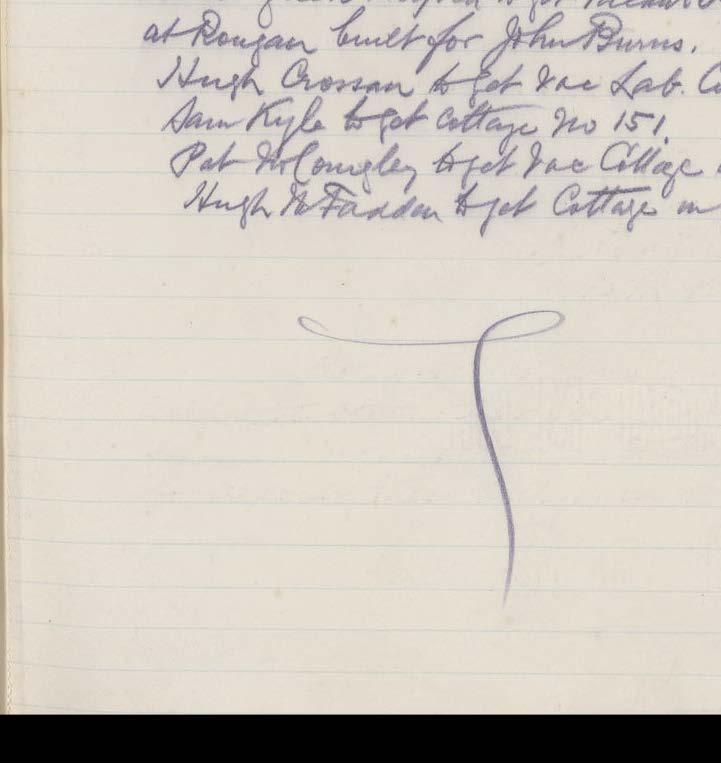 to get
at Rougan built for John Burns.
Hugh Crossan to get Vac Lab.
Sam Kyle to get Cottage No 151.
Pat to get Vac Cottage
Hugh McFadden to get Cottage in